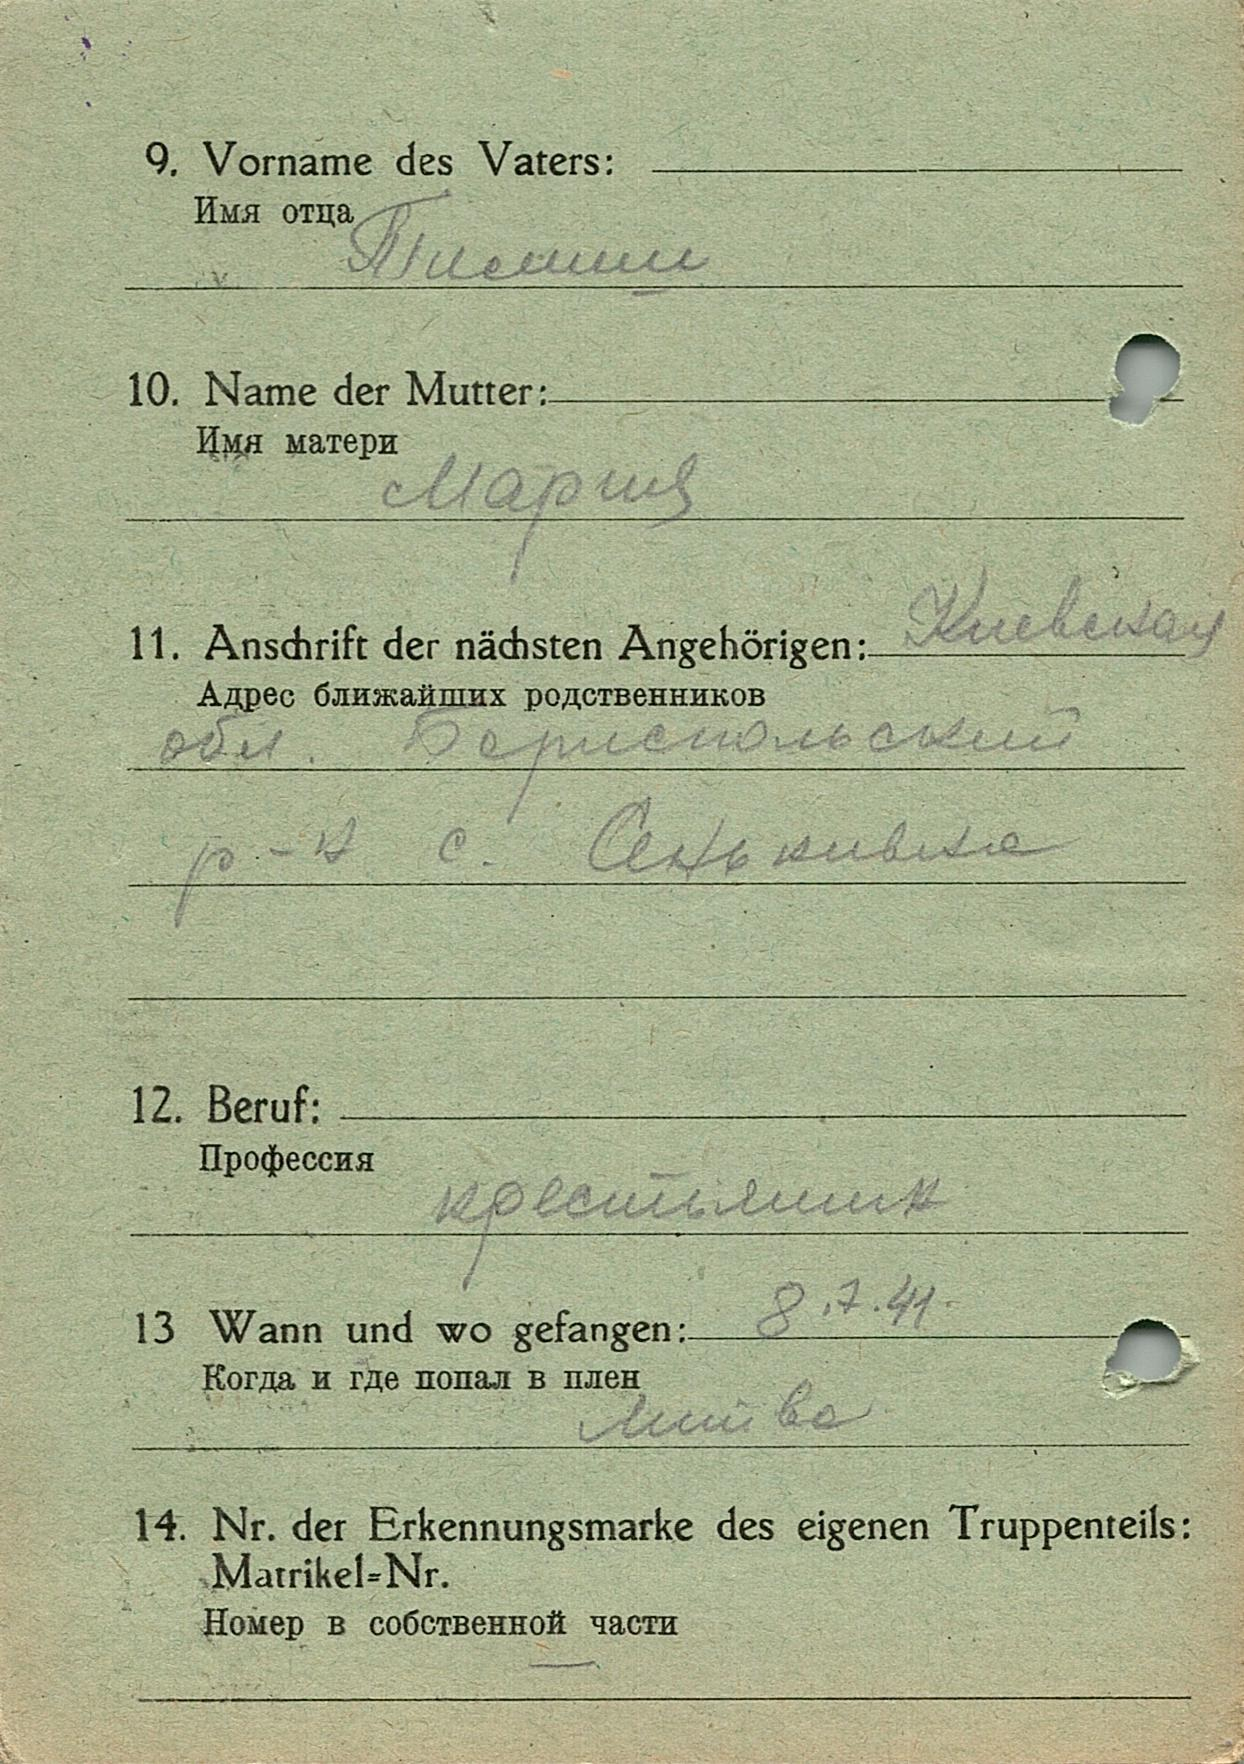 9. Vorname des Vaters:
Имя отца
10. Name der Mutter:
Имя матери
Мария
11. Anschrift der nächsten Angehörigen: Киевская
Адрес ближайших родственников
обл. Бориспольский
р-н с. Сеньковка
12. Beruf:
Профессия
крестьянин
13 Wann und wo gefangen: 8.7.41.
Когда и где попал в плен
Литва
14. Nr. der Erkennungsmarke des eigenen Truppenteils:
Matrikel=Nr.
Номер в собственной части
—